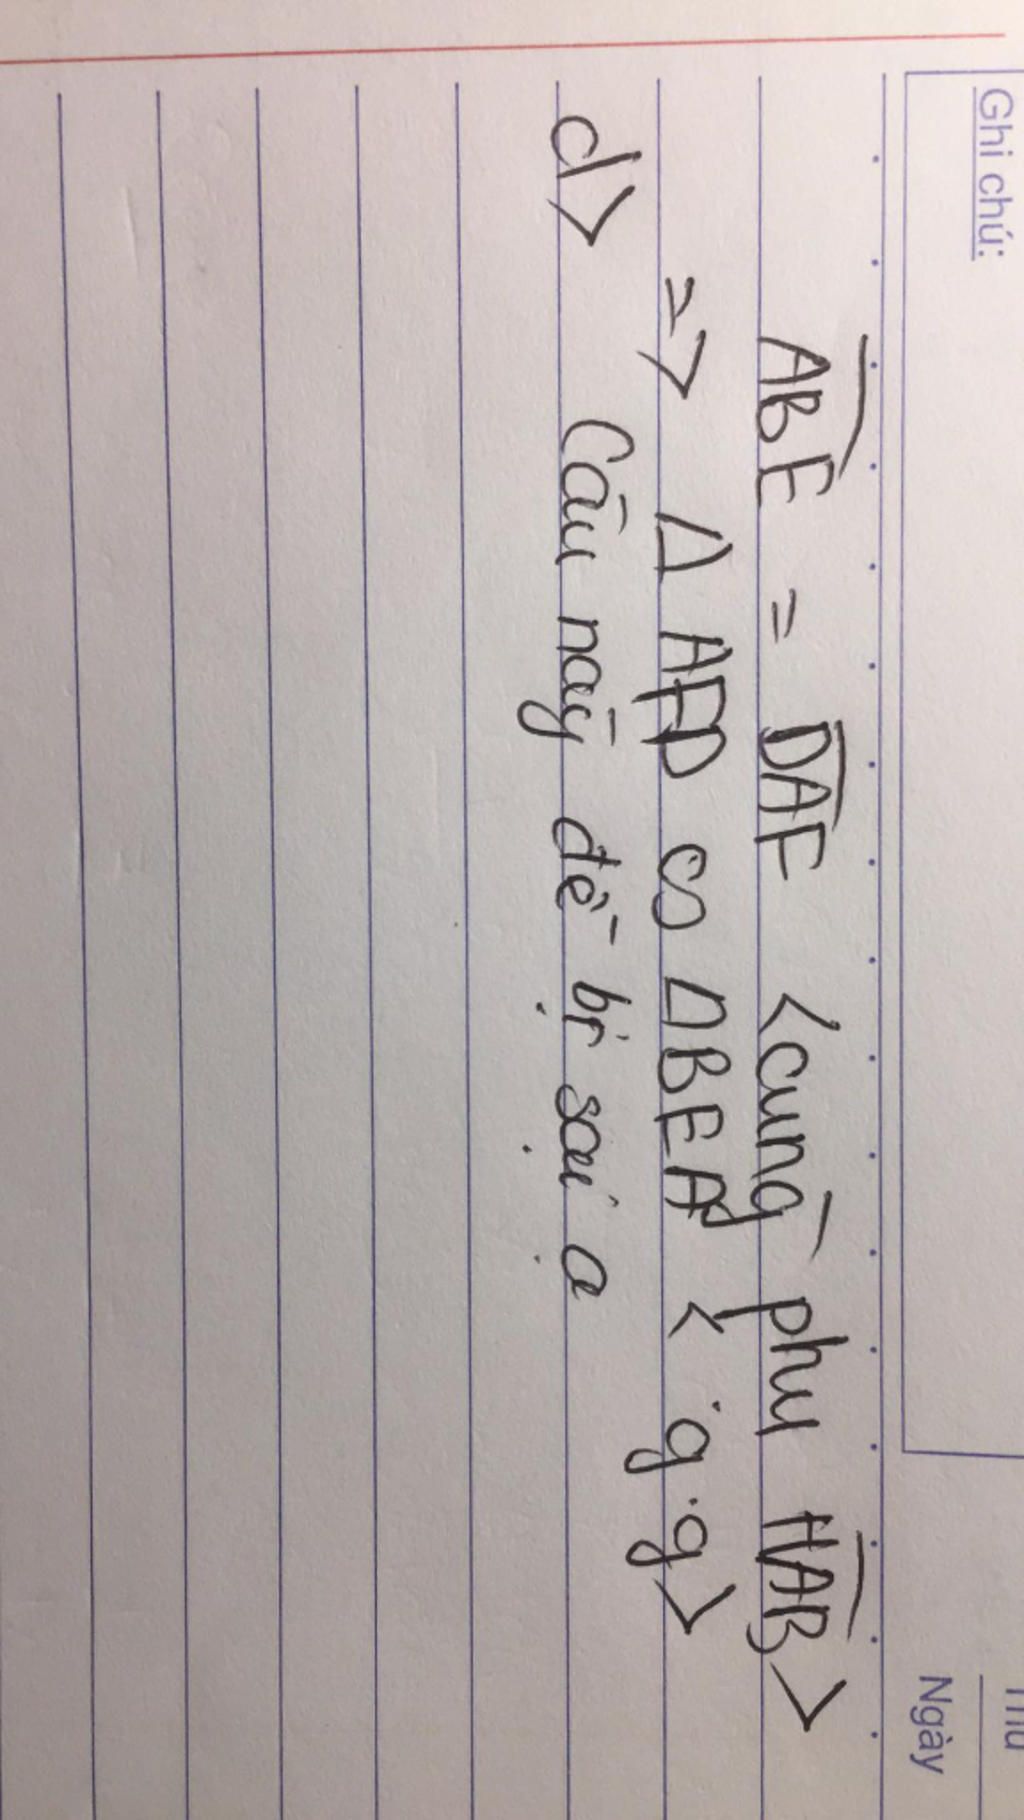 Ghi chú:
Thứ
Ngày
ABE = DAF <cùng phụ HAB>
=> Δ AFD ∽ ΔBEA < g.g>
d> Câu này đề bị sai ạ